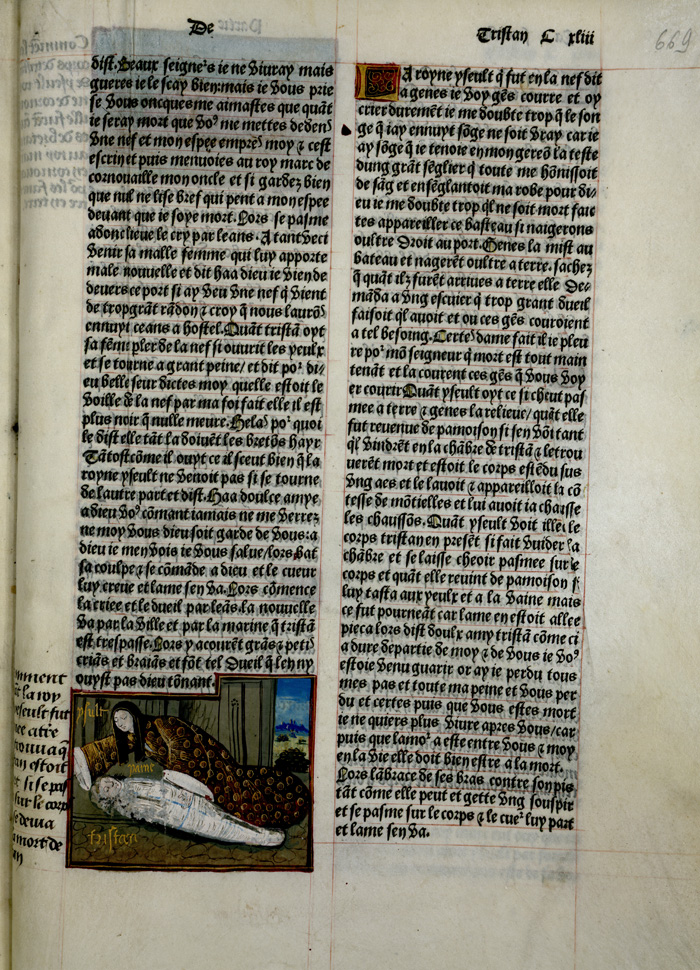 De
Tristan C xliii
669
dist. Beaux seigne᷑s ie ne viuray mais
gueres ie le scay bien: mais ie vous prie
se vous oncques me aimastes que quãt
ie seray mort que voꝰ me mettes dedens
vne nef et mon espee emprez moy ⁊ cest
escrin et puis menuoies au roy marc de
cornouaille mon oncle et si gardez bien
que nul ne lise bref qui pent a mon espee
deuant que ie soye mort. Lors se pasme
adonc lieue le cry par leans. A tant veci
venir sa malle femme qui luy apporte
male nouuelle et dit haa dieu ie vien de
deuers ce port si ay veu vne nef q̃ vient
de trop grãt rãdon ⁊ croy q̃ nous laurõs
ennuyt ceans a hostel. Quãt tristã oyt
sa fẽme pler de la nef si ouurit les yeulx
et se tourne a grant peine/ et dit poᷣ di/
eu belle seur dictes moy quelle estoit le
voille de la nef par ma foi fait elle il est
plus noir q̃ nulle meure. Helas poᷣ quoi
le dist elle tãt la doiuẽt les bretõs hayr
Tãtost cõme il ouyt ce il sceut biẽ q̃ la
royne yseult ne venoit pas si se tourne
de lautre part et dist. Haa doulce amye
a dieu voꝰ cõmant iamais ne me verrez
ne moy vous dieu soit garde de vous: a
dieu ie men vois ie vous salue/lors bat
sa coulpe ⁊ se cõmãde a dieu et le cueur
luy creue et lame sen va. Lors cõmence
la criee et le dueil par leãs. la nouuelle
va par la ville et par la marine q̃ tristã
est trespasse. Lors y acourẽt grãs ⁊ petis
criãs et braiãs et fõt tel dueil q̃ len ny
ouyst pas dieu tõnant.
yseult
tristan
La royne yseult q̃ fut en la nef dit
a genes ie voy gẽs courre et oy
crier durement ie me doubte trop q̃ le son
ge q̃ iay ennuyt sõge ne soit vray car ie
ay sõge q̃ ie tenoie en mon gerõ la teste
dung grãt sẽglier q̃ toute me hõnissoit
de sãg et ensẽglantoit ma robe pour di/
eu ie me doubte trop ql̃ ne soit mort faic
tes appareiller ce basteau si naigerons
oultre droit au port. Genes la mist au
bateau et nagerẽt oultre a terre. sachez
q̃ quãt ilz furẽt arriues a terre elle de/
mãda a vng escuier q̃ trop grant dueil
faisoit ql̃ auoit et ou ces gẽs couroient
a tel besoing. Certes dame fait il ie pleu
re poᷣ mõ seigneur q̃ mort est tout main
tenãt et la courent ces gẽs q̃ vous voy
er courir Quãt yseult oyt ce si cheut pas
mee a terre ⁊ genes la relieue/ quãt elle
fut reuenue de pamoison si sen võt tant
ql̃ vindrẽt en la chãbre de tristã ⁊ le trou
uerẽt mort et estoit le corps estẽdu sus
vng aes et le lauoit ⁊ appareilloit la cõ
tesse de mõtielles et lui auoit ia chausse
les chaussõs. Quãt yseult voit illec le
corps tristan en presẽt si fait vuider la
chãbre et se laisse cheoir pasmee sur le
corps et quãt elle reuint de pamoison si
luy tasta aux yeulx et a la vaine mais
ce fut pour neãt car lame en estoit allee
pieca lors dist doulx amy tristã cõme ci
a dure departie de moy ⁊ de vous ie voꝰ
estoie venu guarir or ay ie perdu tous
mes pas et toute ma peine et vous per
du et certes puis que vous estes mort
ie ne quiers plus viure apres vous/car
puis que lamoᷣ a este entre vous ⁊ moy
en la vie elle doit bien estre a la mort.
Lors lãbrace de ses bras contre son pis
tãt cõme elle peut et gette vng souspir
et se pasme sur le corps ⁊ le cueᷣ luy part
et lame sen va.